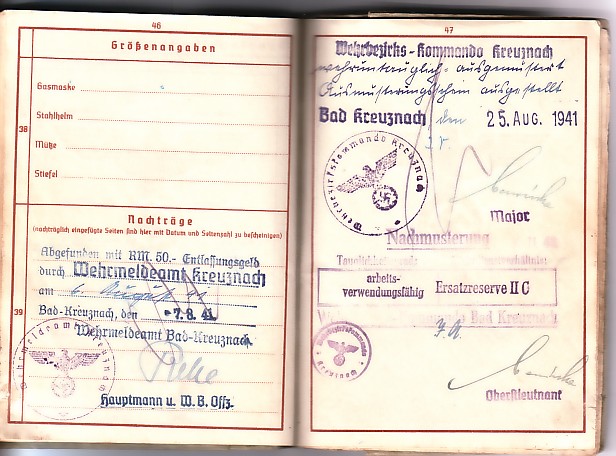 46
Größenangaben
Gasmaske
Stahlhelm
38
Mütze
Stiefel
Nachträge
(nachträglich eingefügte Seiten sind hier mit Datum und Seitenzahl zu bescheinigen)
Abgefunden mit RM. 50.- Entlassungsgeld
durch Wehrmeldeamt Kreuznach
am 6. August 41
39
Bad-Kreuznach, den -7.8.41
Wehrmeldeamt Bad-Kreuznach.
Hauptmann u. W.B. Offz.
47
Wehrbezirks-Kommando Kreuznach
wehruntauglich - ausgemustert
Ausmusterungsschein ausgestellt
Bad Kreuznach den 25. AUG. 1941
Wehrbezirkskommando Kreuznach
Major
Nachmusterung
arbeits-
verwendungsfähig Ersatzreserve II C
Bad Kreuznach
Oberstleutnant